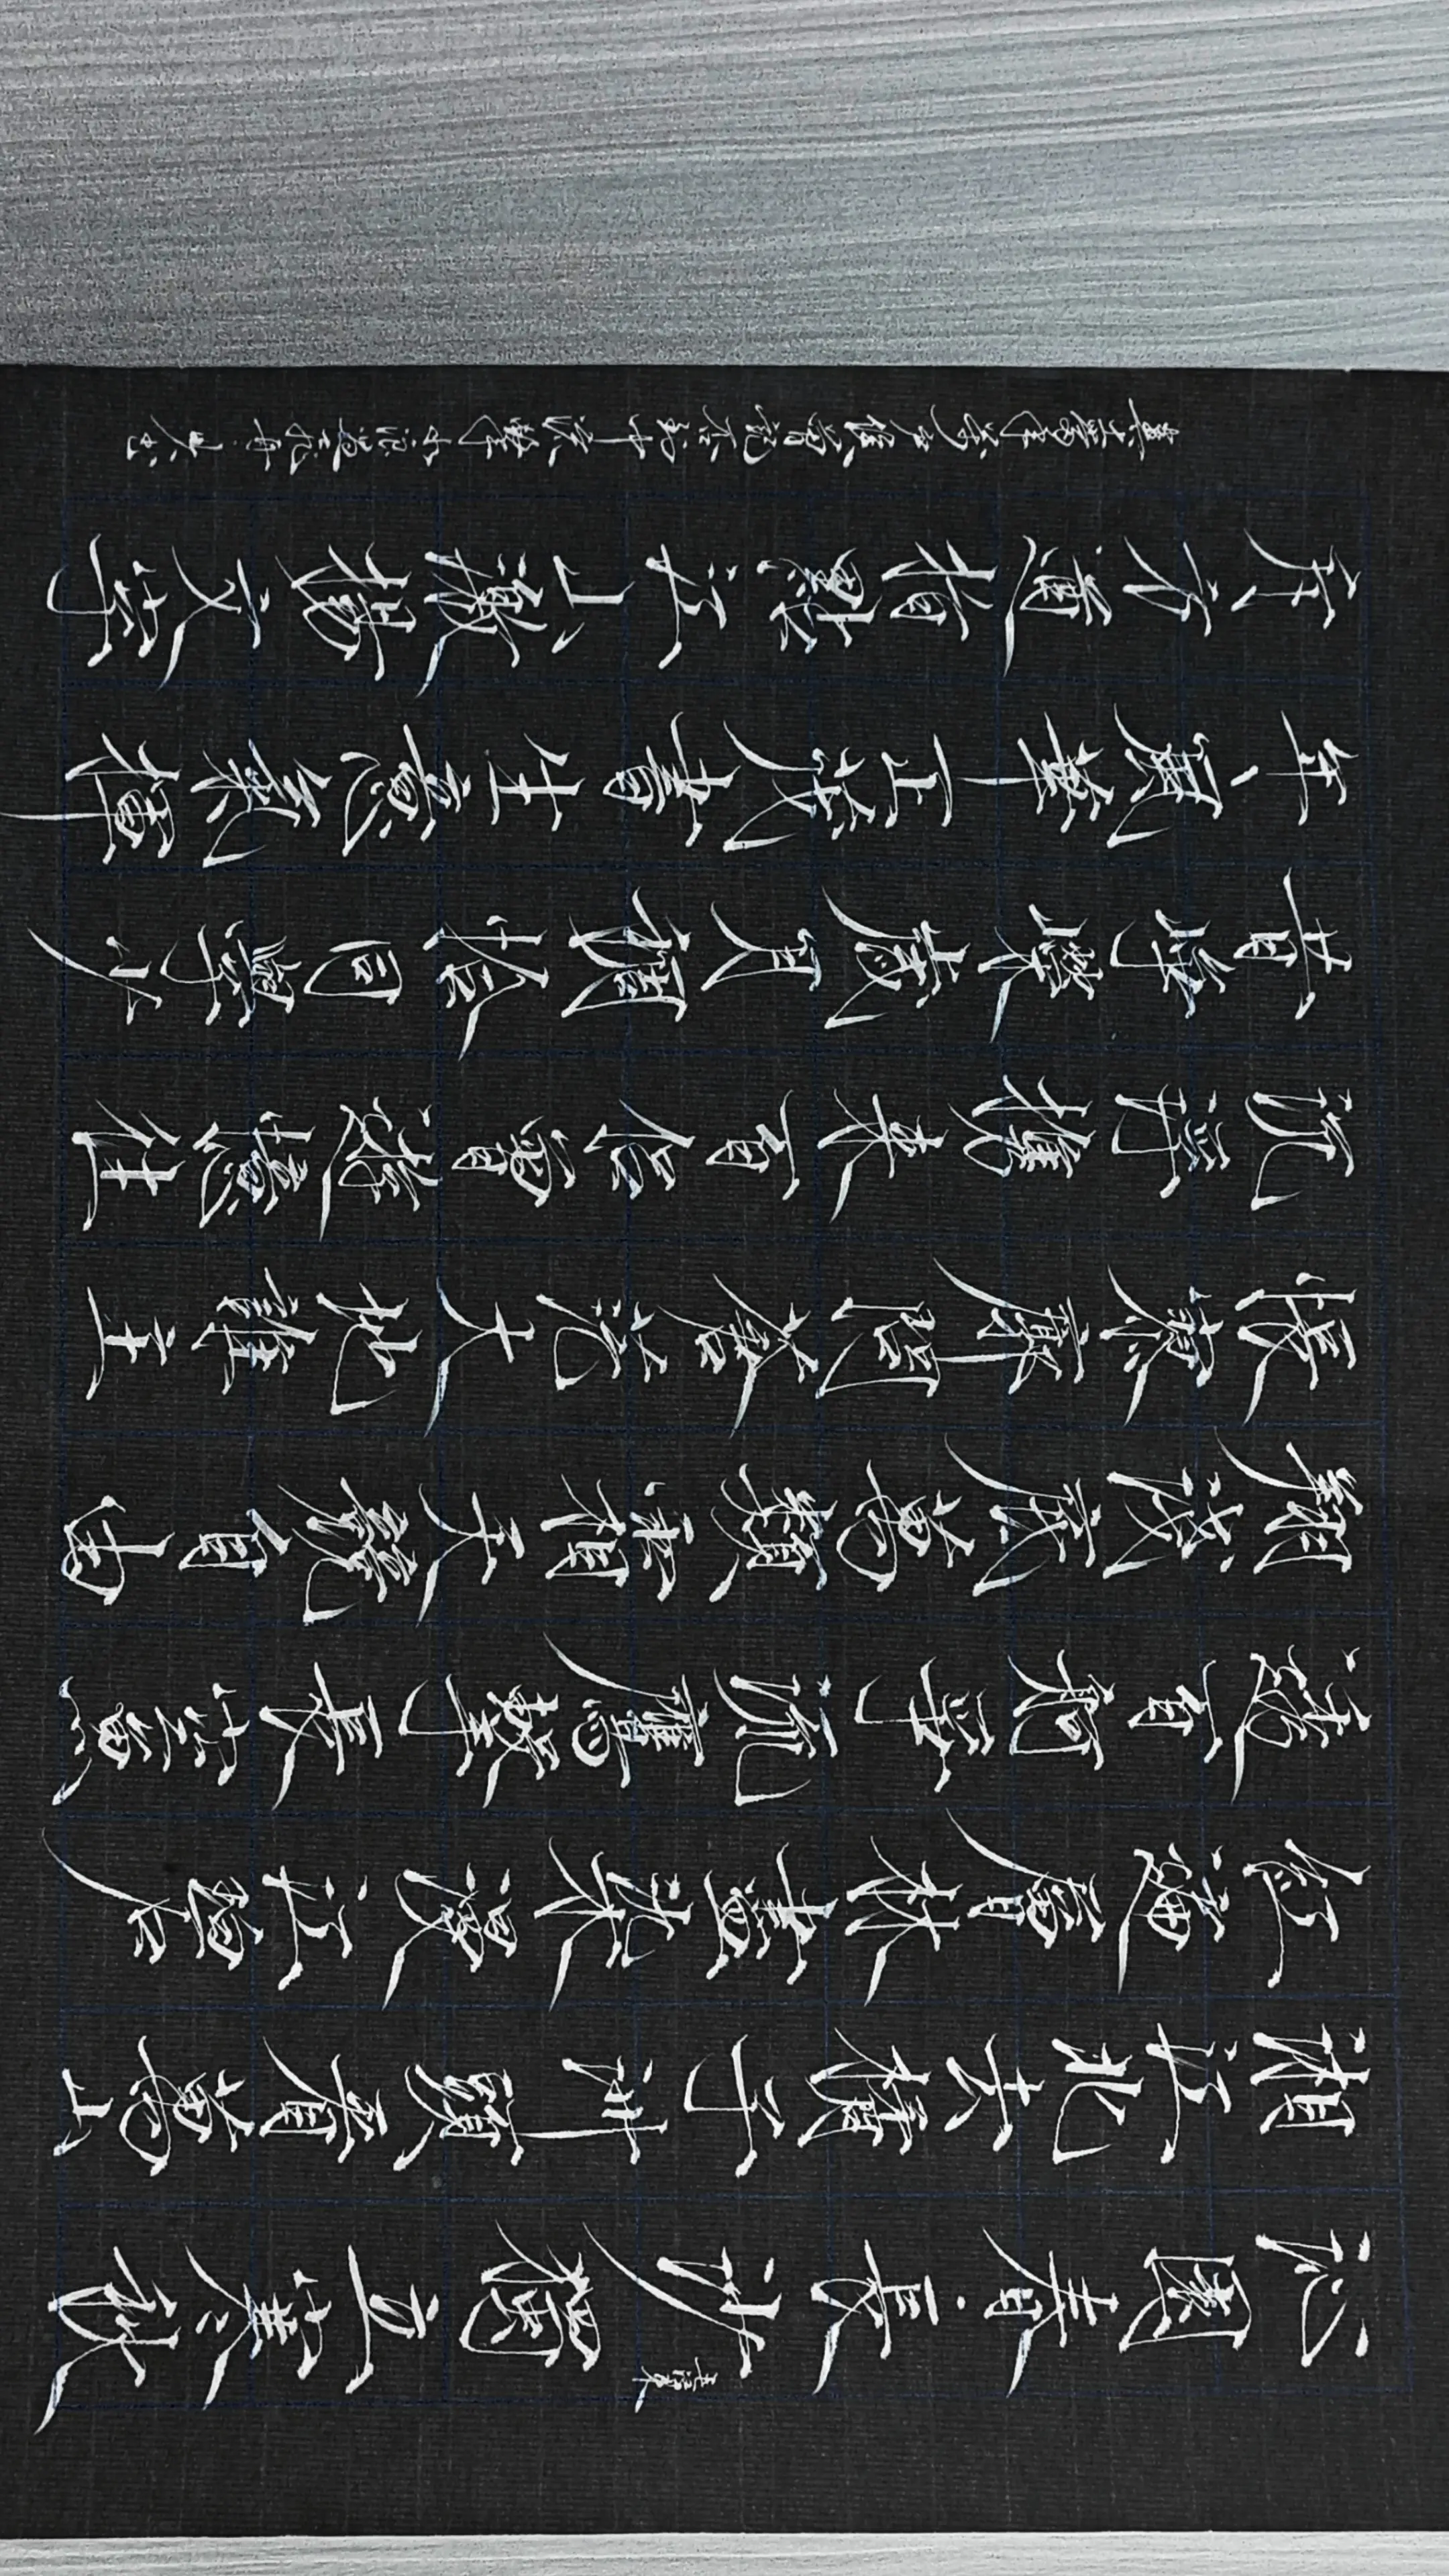 沁園春·長沙 毛澤東 獨立寒秋
湘江北去橘子洲頭看萬山
紅遍層林盡染漫江碧
透百舸爭流鷹擊長空魚
翔淺底萬類霜天競自由
悵寥廓問蒼茫大地誰主
沉浮攜來百侶曾遊憶往
昔崢嶸歲月稠恰同學少
年風華正茂書生意氣揮
斥方遒指點江山激揚文字
糞土當年萬戶侯曾記否到中流擊水浪遏飛舟